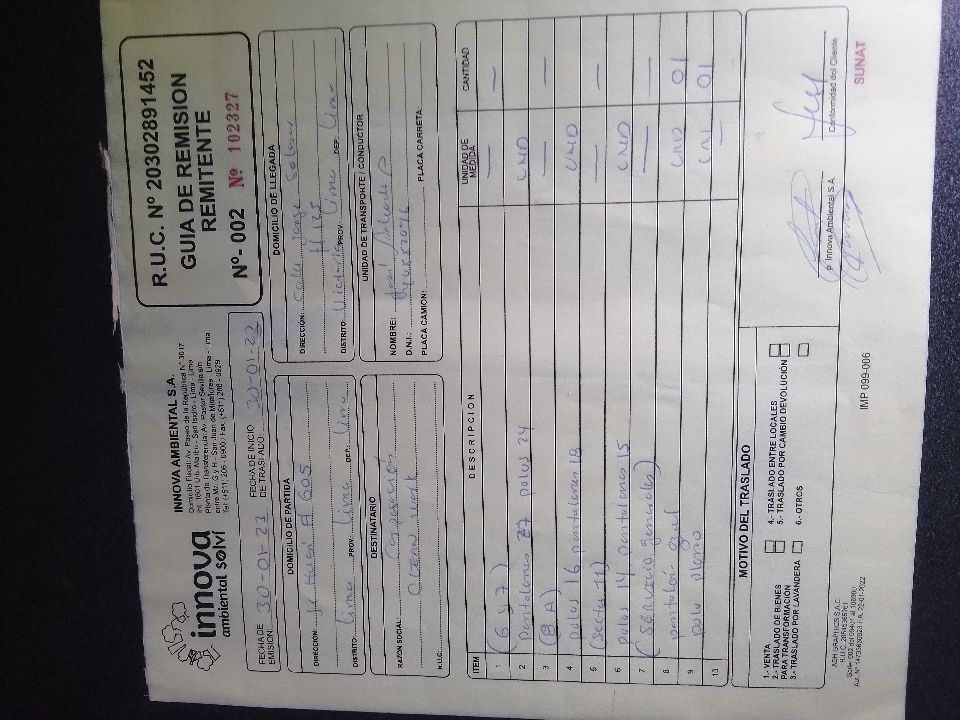 innova
ambiental solví
INNOVA AMBIENTAL S.A.
Domicilio Fiscal: Av. Paseo de la Republica N° 3617
Int. 1601 Urb. - San Isidro - Lima - Lima
Planta de Transferencia: Av. Pastor Sevilla s/n
entre Mz. G y H - San Juan de Miraflores - Lima - Lima
Tel. (+511) 206 - 0900 / Fax: (+511) 206 - 0929
R.U.C. N° 20302891452
GUIA DE REMISION
REMITENTE
N°- 002 N° 102327
FECHA DE EMISIÓN: 30-01-23
FECHA DE INICIO DE TRASLADO: 30-01-23
DOMICILIO DE PARTIDA
DIRECCIÓN: A 605
DISTRITO: Lima PROV.: Lima DEP.: Lima
DOMICILIO DE LLEGADA
DIRECCIÓN: Calle Jorge
# 135
DISTRITO: Victoria PROV.: Lima DEP.: Lima
DESTINATARIO
RAZÓN SOCIAL: Corporación
Clean Work
R.U.C.:
UNIDAD DE TRANSPORTE / CONDUCTOR
NOMBRE: José
D.N.I.:
PLACA CAMIÓN: PLACA CARRETA:
ITEM DESCRIPCION UNIDAD DE MEDIDA CANTIDAD
1 (6 y 7) — —
2 Pantalones 27 polos 24 UND
3 (8 A) — —
4 polos 16 pantalones 18 UND
5 (sector 11) — —
6 polos 14 pantalones 15 UND
7 (SERVICIO generales) — —
8 pantalón UND 01
9 polo plomo UNI 01
10 —
MOTIVO DEL TRASLADO
1.- VENTA
2.- TRASLADO DE BIENES PARA TRANSFORMACIÓN
3.- TRASLADO POR LAVANDERA
4.- TRASLADO ENTRE LOCALES
5.- TRASLADO POR CAMBIO DEVOLUCIÓN
6.- OTROS
P. Innova Ambiental S.A.
Conformidad del Cliente
ADH GRAPHICS S.A.C.
IMP 099-006
SUNAT